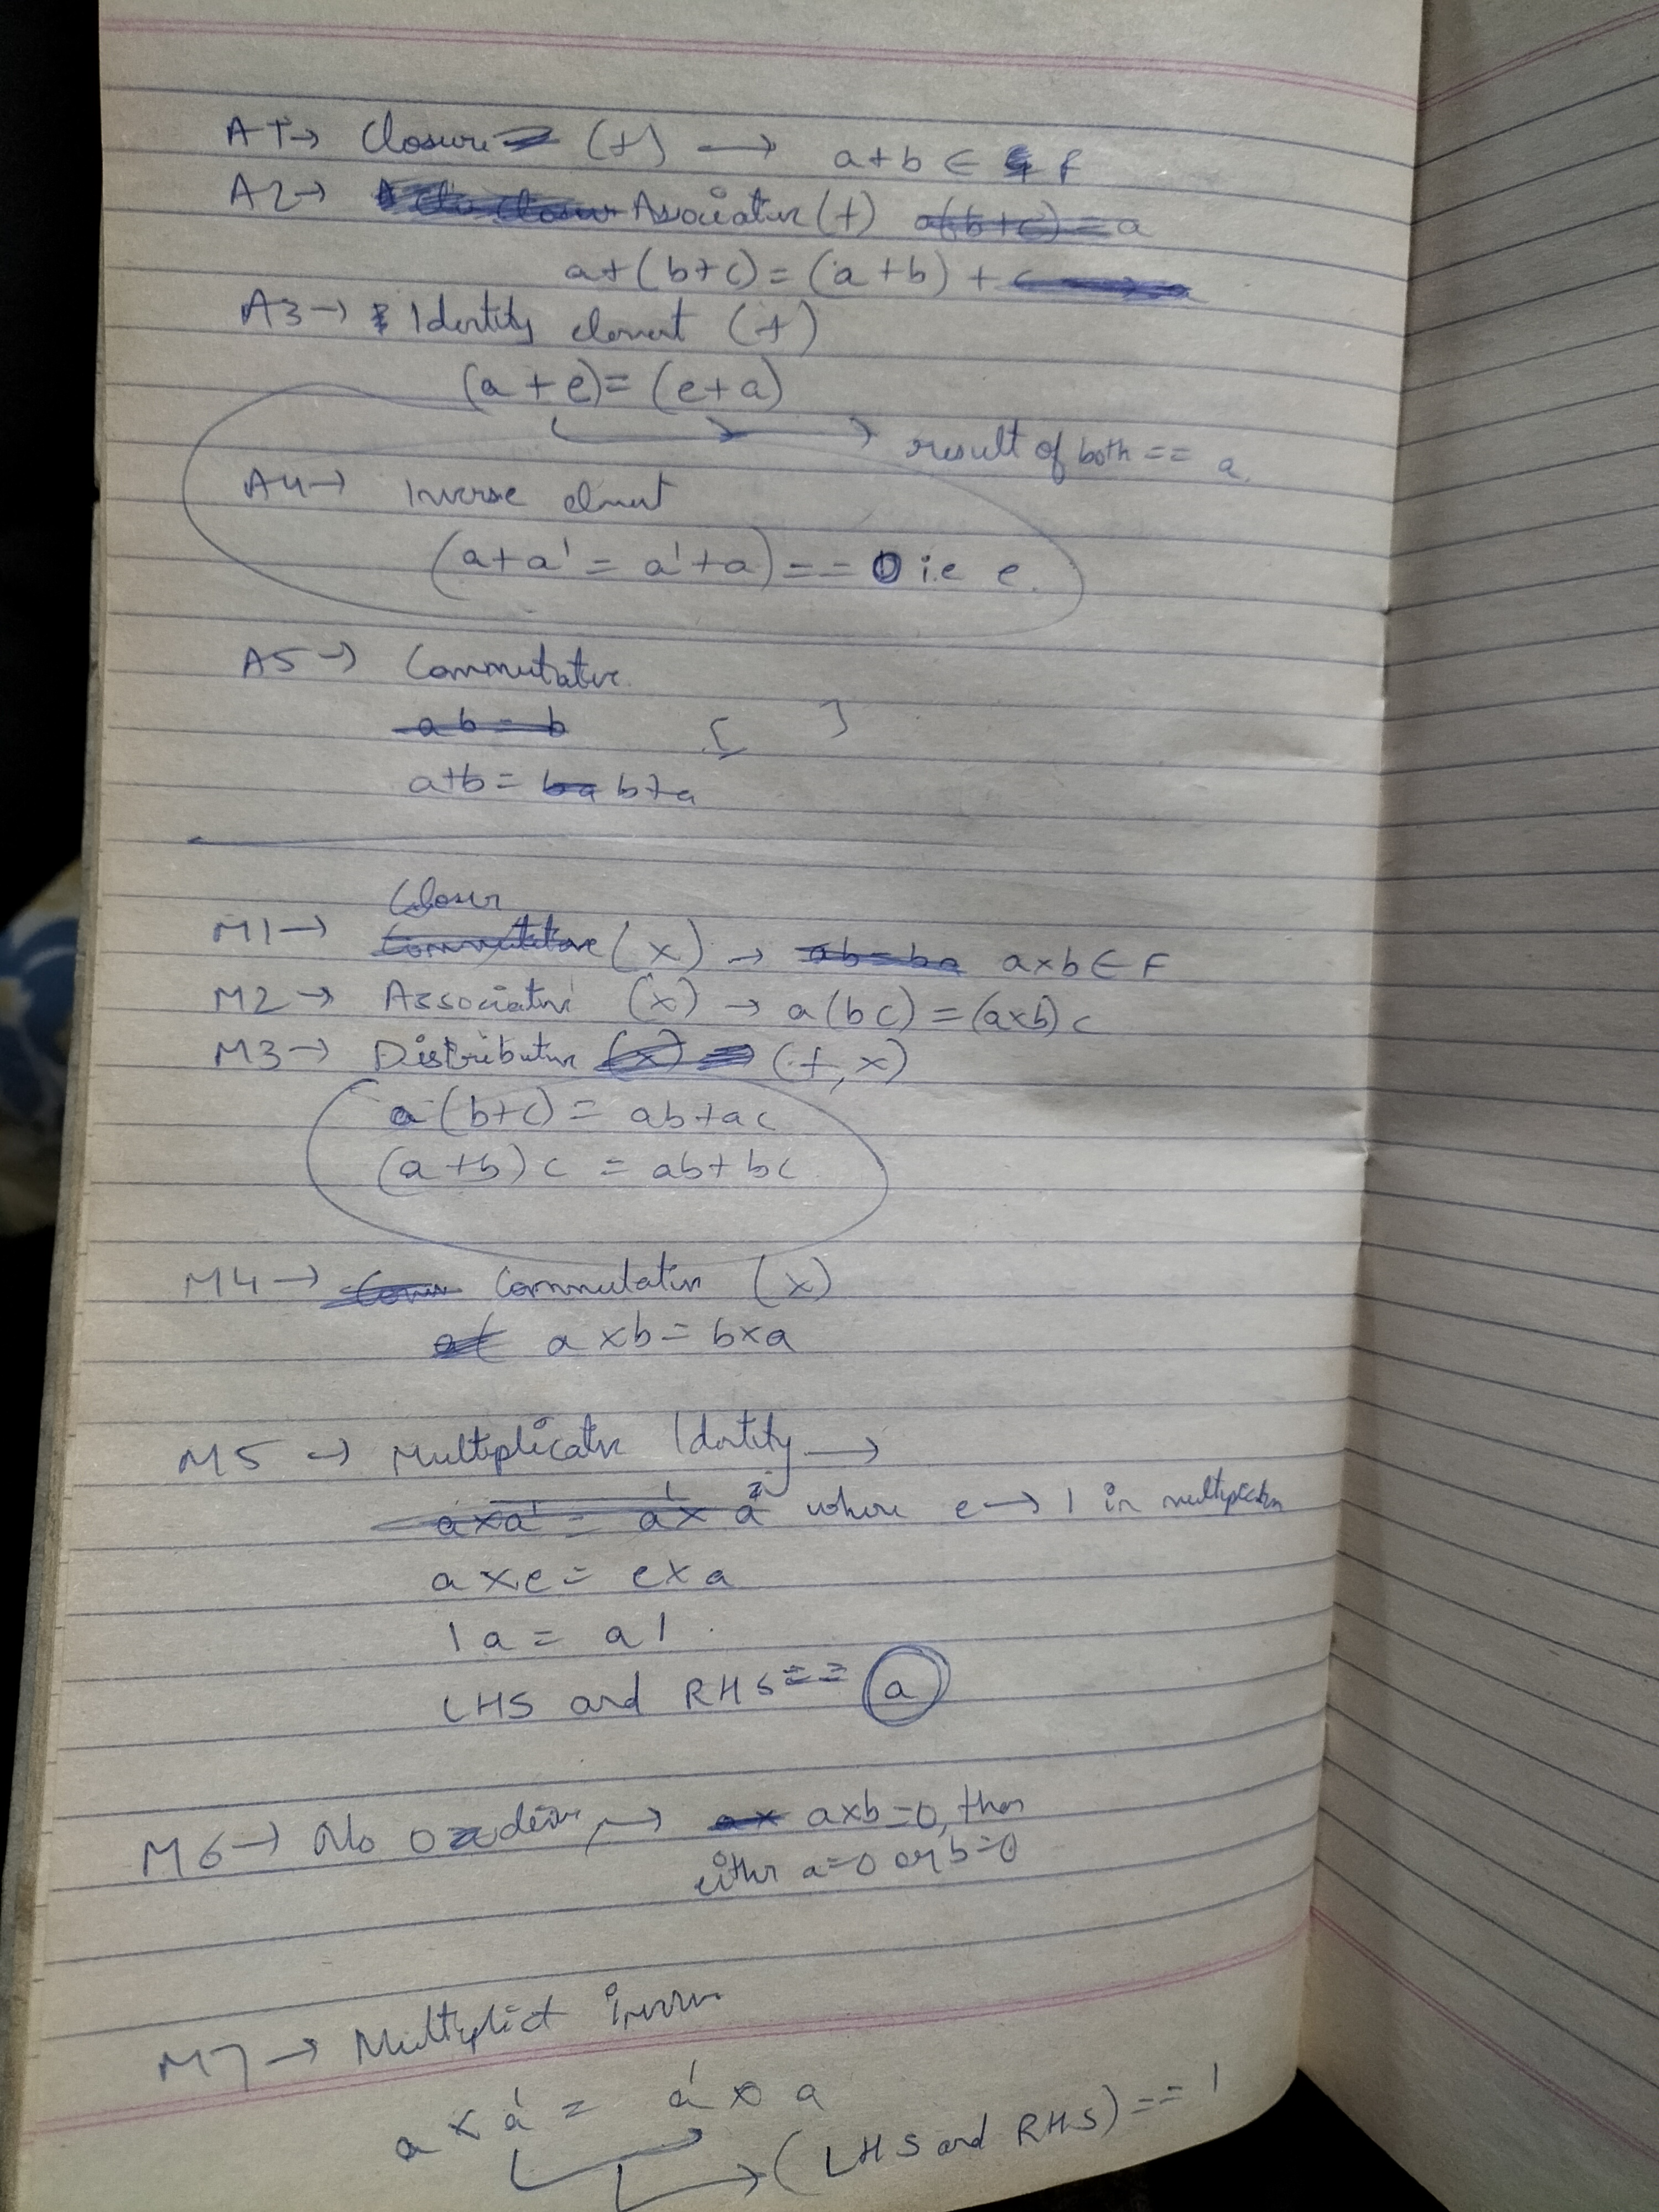 A1→ Closure (+) → a+b ∈ F
A2→ Associative (+) a(b+c) = a
a+(b+c) = (a+b) + c
A3→ Identity element (+)
(a+e) = (e+a)
→ result of both == a.
A4→ Inverse elment
(a+a' = a'+a) == 0 i.e e.
A5→ Commutative.
ab = b [ ]
a+b = ba b+a
Closur
M1→ Commutative (x) → ab=ba axb ∈ F
M2→ Associative (x) → a(bc) = (axb)c
M3→ Distributive (x) (+,x)
a(b+c) = ab+ac
(a+b)c = ab+bc
M4→ Commutative (x)
a( axb = bxa
M5→ Multiplicative Identity →
axa' = a'x a where e→1 in multiplication
axe = exa
1a = a1.
LHS and RHS == a
M6→ No 0 → ax axb=0, then
either a=0 or b=0
M7→ Multiplict Inverse
a x a' = a' x a
→ (LHS and RHS) == 1